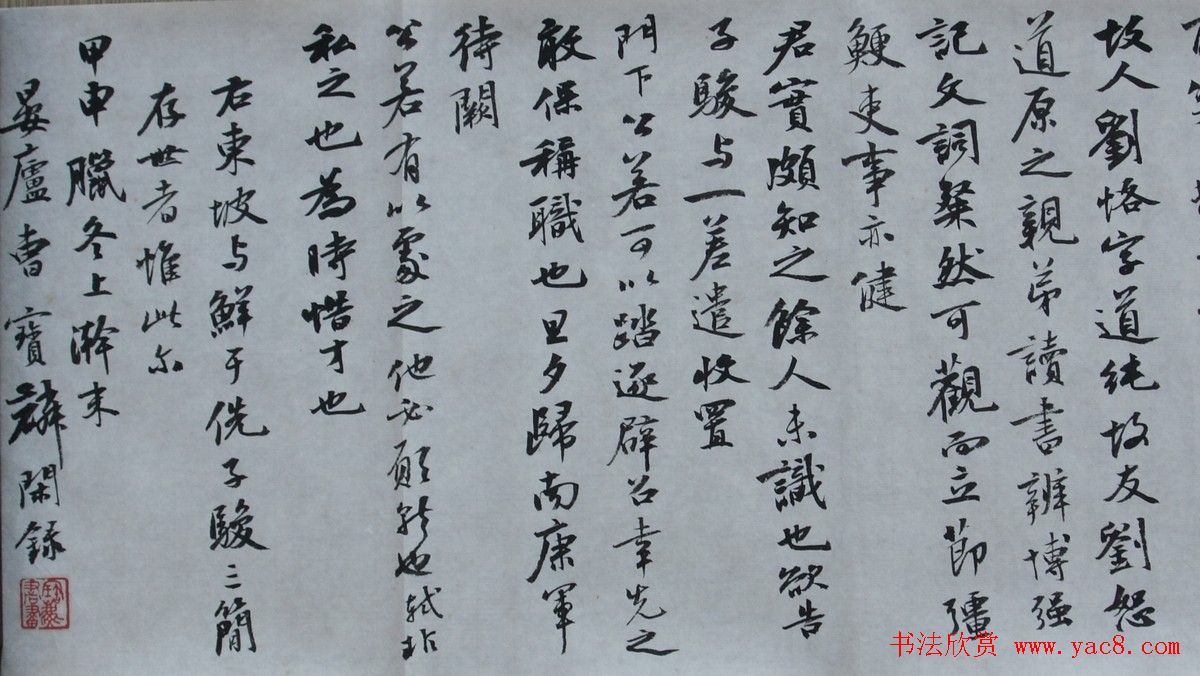 故人劉恪字道純故友劉恕
道原之親弟讀書辨博强
記文詞粲然可觀而立節彊
鯁吏事亦健
君實頗知之餘人未識也欲告
子駿与一差遣收置
門下公若可以踏逐辟召幸先之
敢保稱職也旦夕歸南康軍
待闕
公若有以處之他必願就也軾非
私之也為時惜才也
右東坡与鮮于侁子駿三簡
存世者惟此尔
甲申臘冬上澣末
晏廬曹寶麟閑録
书法欣赏 www.yac8.com